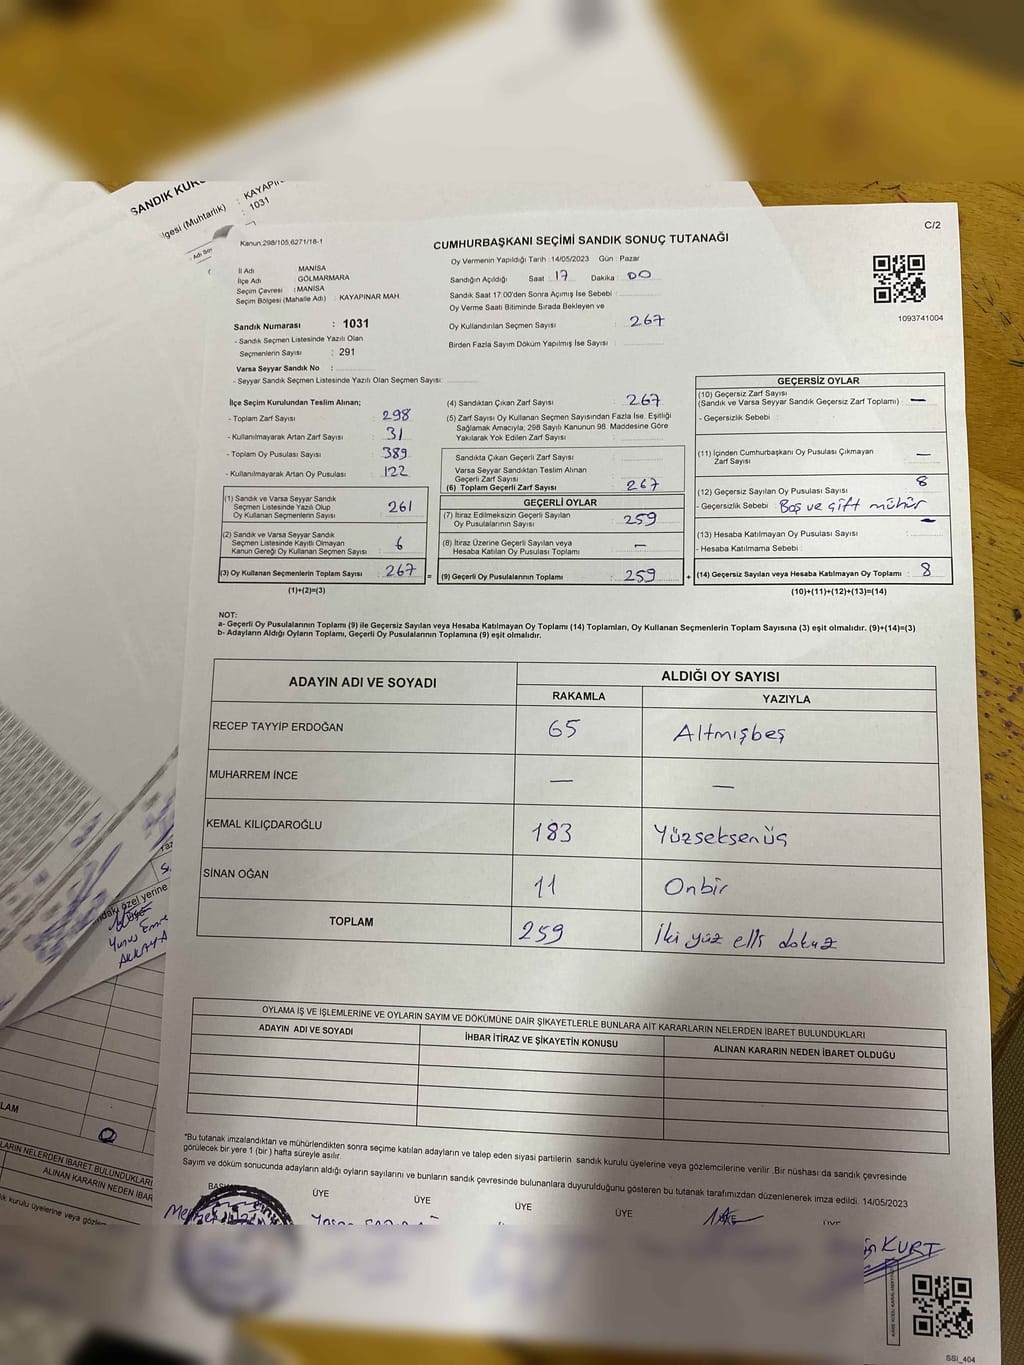 SANDIK KUR
lgesi (Muhtarlık) : KAYAPIN
: 1031
C/2
Kanun.298/105,6271/18-1
CUMHURBAŞKANI SEÇİMİ SANDIK SONUÇ TUTANAĞI
Oy Vermenin Yapıldığı Tarih : 14/05/2023 Gün : Pazar
İl Adı MANİSA
İlçe Adı GÖLMARMARA
Seçim Çevresi : MANİSA
Seçim Bölgesi (Mahalle Adı) : KAYAPINAR MAH.
Sandığın Açıldığı Saat : 17 Dakika : 00
Sandık Saat 17:00'den Sonra Açımış İse Sebebi :
Oy Verme Saati Bitiminde Sırada Bekleyen ve
Oy Kullandırılan Seçmen Sayısı : 267
Birden Fazla Sayım Döküm Yapılmış İse Sayısı :
1093741004
Sandık Numarası : 1031
- Sandık Seçmen Listesinde Yazılı Olan
Seçmenlerin Sayısı : 291
Varsa Seyyar Sandık No :
- Seyyar Sandık Seçmen Listesinde Yazılı Olan Seçmen Sayısı:
İlçe Seçim Kurulundan Teslim Alınan;
- Toplam Zarf Sayısı : 298
- Kullanılmayarak Artan Zarf Sayısı : 31
- Toplam Oy Pusulası Sayısı : 389
- Kullanılmayarak Artan Oy Pusulası : 122
(1) Sandık ve Varsa Seyyar Sandık
Seçmen Listesinde Yazılı Olup
Oy Kullanan Seçmenlerin Sayısı : 261
(2) Sandık ve Varsa Seyyar Sandık
Seçmen Listesinde Kayıtlı Olmayan
Kanun Gereği Oy Kullanan Seçmen Sayısı : 6
(3) Oy Kullanan Seçmenlerin Toplam Sayısı : 267
(1)+(2)=(3)
(4) Sandıktan Çıkan Zarf Sayısı : 267
(5) Zarf Sayısı Oy Kullanan Seçmen Sayısından Fazla İse, Eşitliği
Sağlamak Amacıyla; 298 Sayılı Kanunun 98. Maddesine Göre
Yakılarak Yok Edilen Zarf Sayısı :
Sandıkta Çıkan Geçerli Zarf Sayısı :
Varsa Seyyar Sandıktan Teslim Alınan
Geçerli Zarf Sayısı :
(6) Toplam Geçerli Zarf Sayısı : 267
GEÇERLİ OYLAR
(7) İtiraz Edilmeksizin Geçerli Sayılan
Oy Pusulalarının Sayısı : 259
(8) İtiraz Üzerine Geçerli Sayılan veya
Hesaba Katılan Oy Pusulası Toplamı : —
= (9) Geçerli Oy Pusulalarının Toplamı : 259
GEÇERSİZ OYLAR
(10) Geçersiz Zarf Sayısı
(Sandık ve Varsa Seyyar Sandık Geçersiz Zarf Toplamı) : —
- Geçersizlik Sebebi :
(11) İçinden Cumhurbaşkanı Oy Pusulası Çıkmayan
Zarf Sayısı : —
(12) Geçersiz Sayılan Oy Pusulası Sayısı : 8
- Geçersizlik Sebebi : Boş ve çift mühür
(13) Hesaba Katılmayan Oy Pusulası Sayısı : —
- Hesaba Katılmama Sebebi :
+ (14) Geçersiz Sayılan veya Hesaba Katılmayan Oy Toplamı : 8
(10)+(11)+(12)+(13)=(14)
NOT:
a- Geçerli Oy Pusulalarının Toplamı (9) ile Geçersiz Sayılan veya Hesaba Katılmayan Oy Toplamı (14) Toplamları, Oy Kullanan Seçmenlerin Toplam Sayısına (3) eşit olmalıdır. (9)+(14)=(3)
b- Adayların Aldığı Oyların Toplamı, Geçerli Oy Pusulalarının Toplamına (9) eşit olmalıdır.
ADAYIN ADI VE SOYADI ALDIĞI OY SAYISI
RAKAMLA YAZIYLA
RECEP TAYYİP ERDOĞAN 65 Altmışbeş
MUHARREM İNCE — —
KEMAL KILIÇDAROĞLU 183 Yüzseksenüç
SİNAN OĞAN 11 Onbir
TOPLAM 259 İki yüz elli dokuz
OYLAMA İŞ VE İŞLEMLERİNE VE OYLARIN SAYIM VE DÖKÜMÜNE DAİR ŞİKAYETLERLE BUNLARA AİT KARARLARIN NELERDEN İBARET BULUNDUKLARI
ADAYIN ADI VE SOYADI İHBAR İTİRAZ VE ŞİKAYETİN KONUSU ALINAN KARARIN NEDEN İBARET OLDUĞU
*Bu tutanak imzalandıktan ve mühürlendikten sonra seçime katılan adayların ve talep eden siyasi partilerin sandık kurulu üyelerine veya gözlemcilerine verilir. Bir nüshası da sandık çevresinde
görülecek bir yere 1 (bir) hafta süreyle asılır.
Sayım ve döküm sonucunda adayların aldığı oyların sayılarını ve bunların sandık çevresinde bulunanlara duyurulduğunu gösteren bu tutanak tarafımızdan düzenlenerek imza edildi. 14/05/2023
ÜYE ÜYE ÜYE ÜYE
KURT
SSI_404
ndaki özel yerine
Yunus Emre
AKKAYA
LAM 0
LARIN NELERDEN İBARET BULUNDUKLARI
ALINAN KARARIN NEDEN İBAR